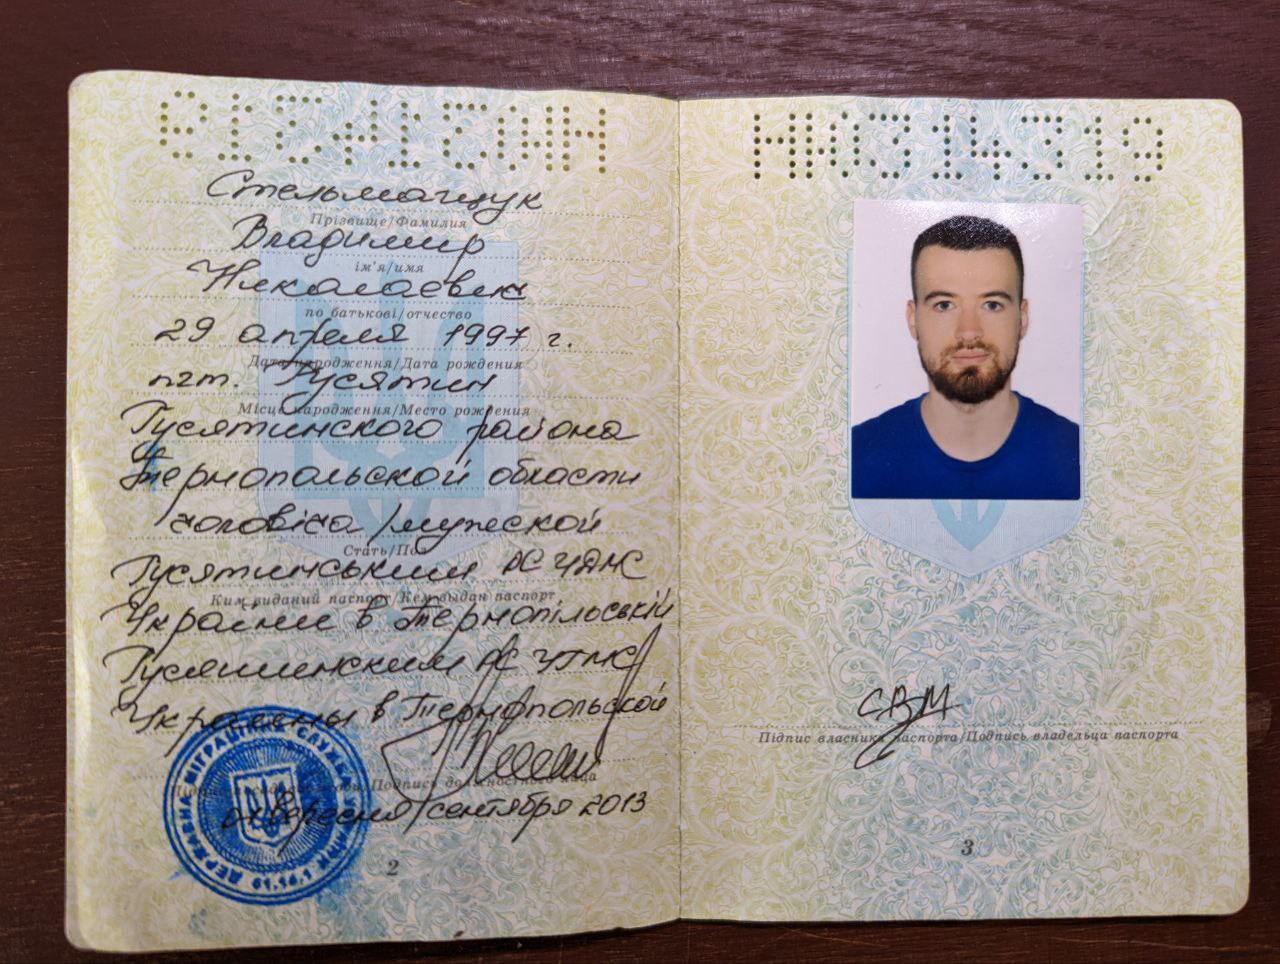 Стельмащук
Прізвище/Фамилия
Владимир
ім'я/имя
Николаевич
по батькові/отчество
29 апреля 1997 г.
Дата народження/Дата рождения
пгт. Гусятин
Місце народження/Место рождения
Гусятинского района
Тернопольской области
чоловіча/мужской
Стать/Пол
Гусятинським РС УДМС
Ким виданий паспорт/Кем выдан паспорт
України в Тернопільській
Гусятинским РС УГМС
Украины в Тернопольской
Підпис посадової особи/Подпись должностного лица
вересня/сентября 2013
ДЕРЖАВНА МІГРАЦІЙНА СЛУЖБА УКРАЇНИ
2
МА0314319
СВМ
Підпис власника паспорта/Подпись владельца паспорта
3